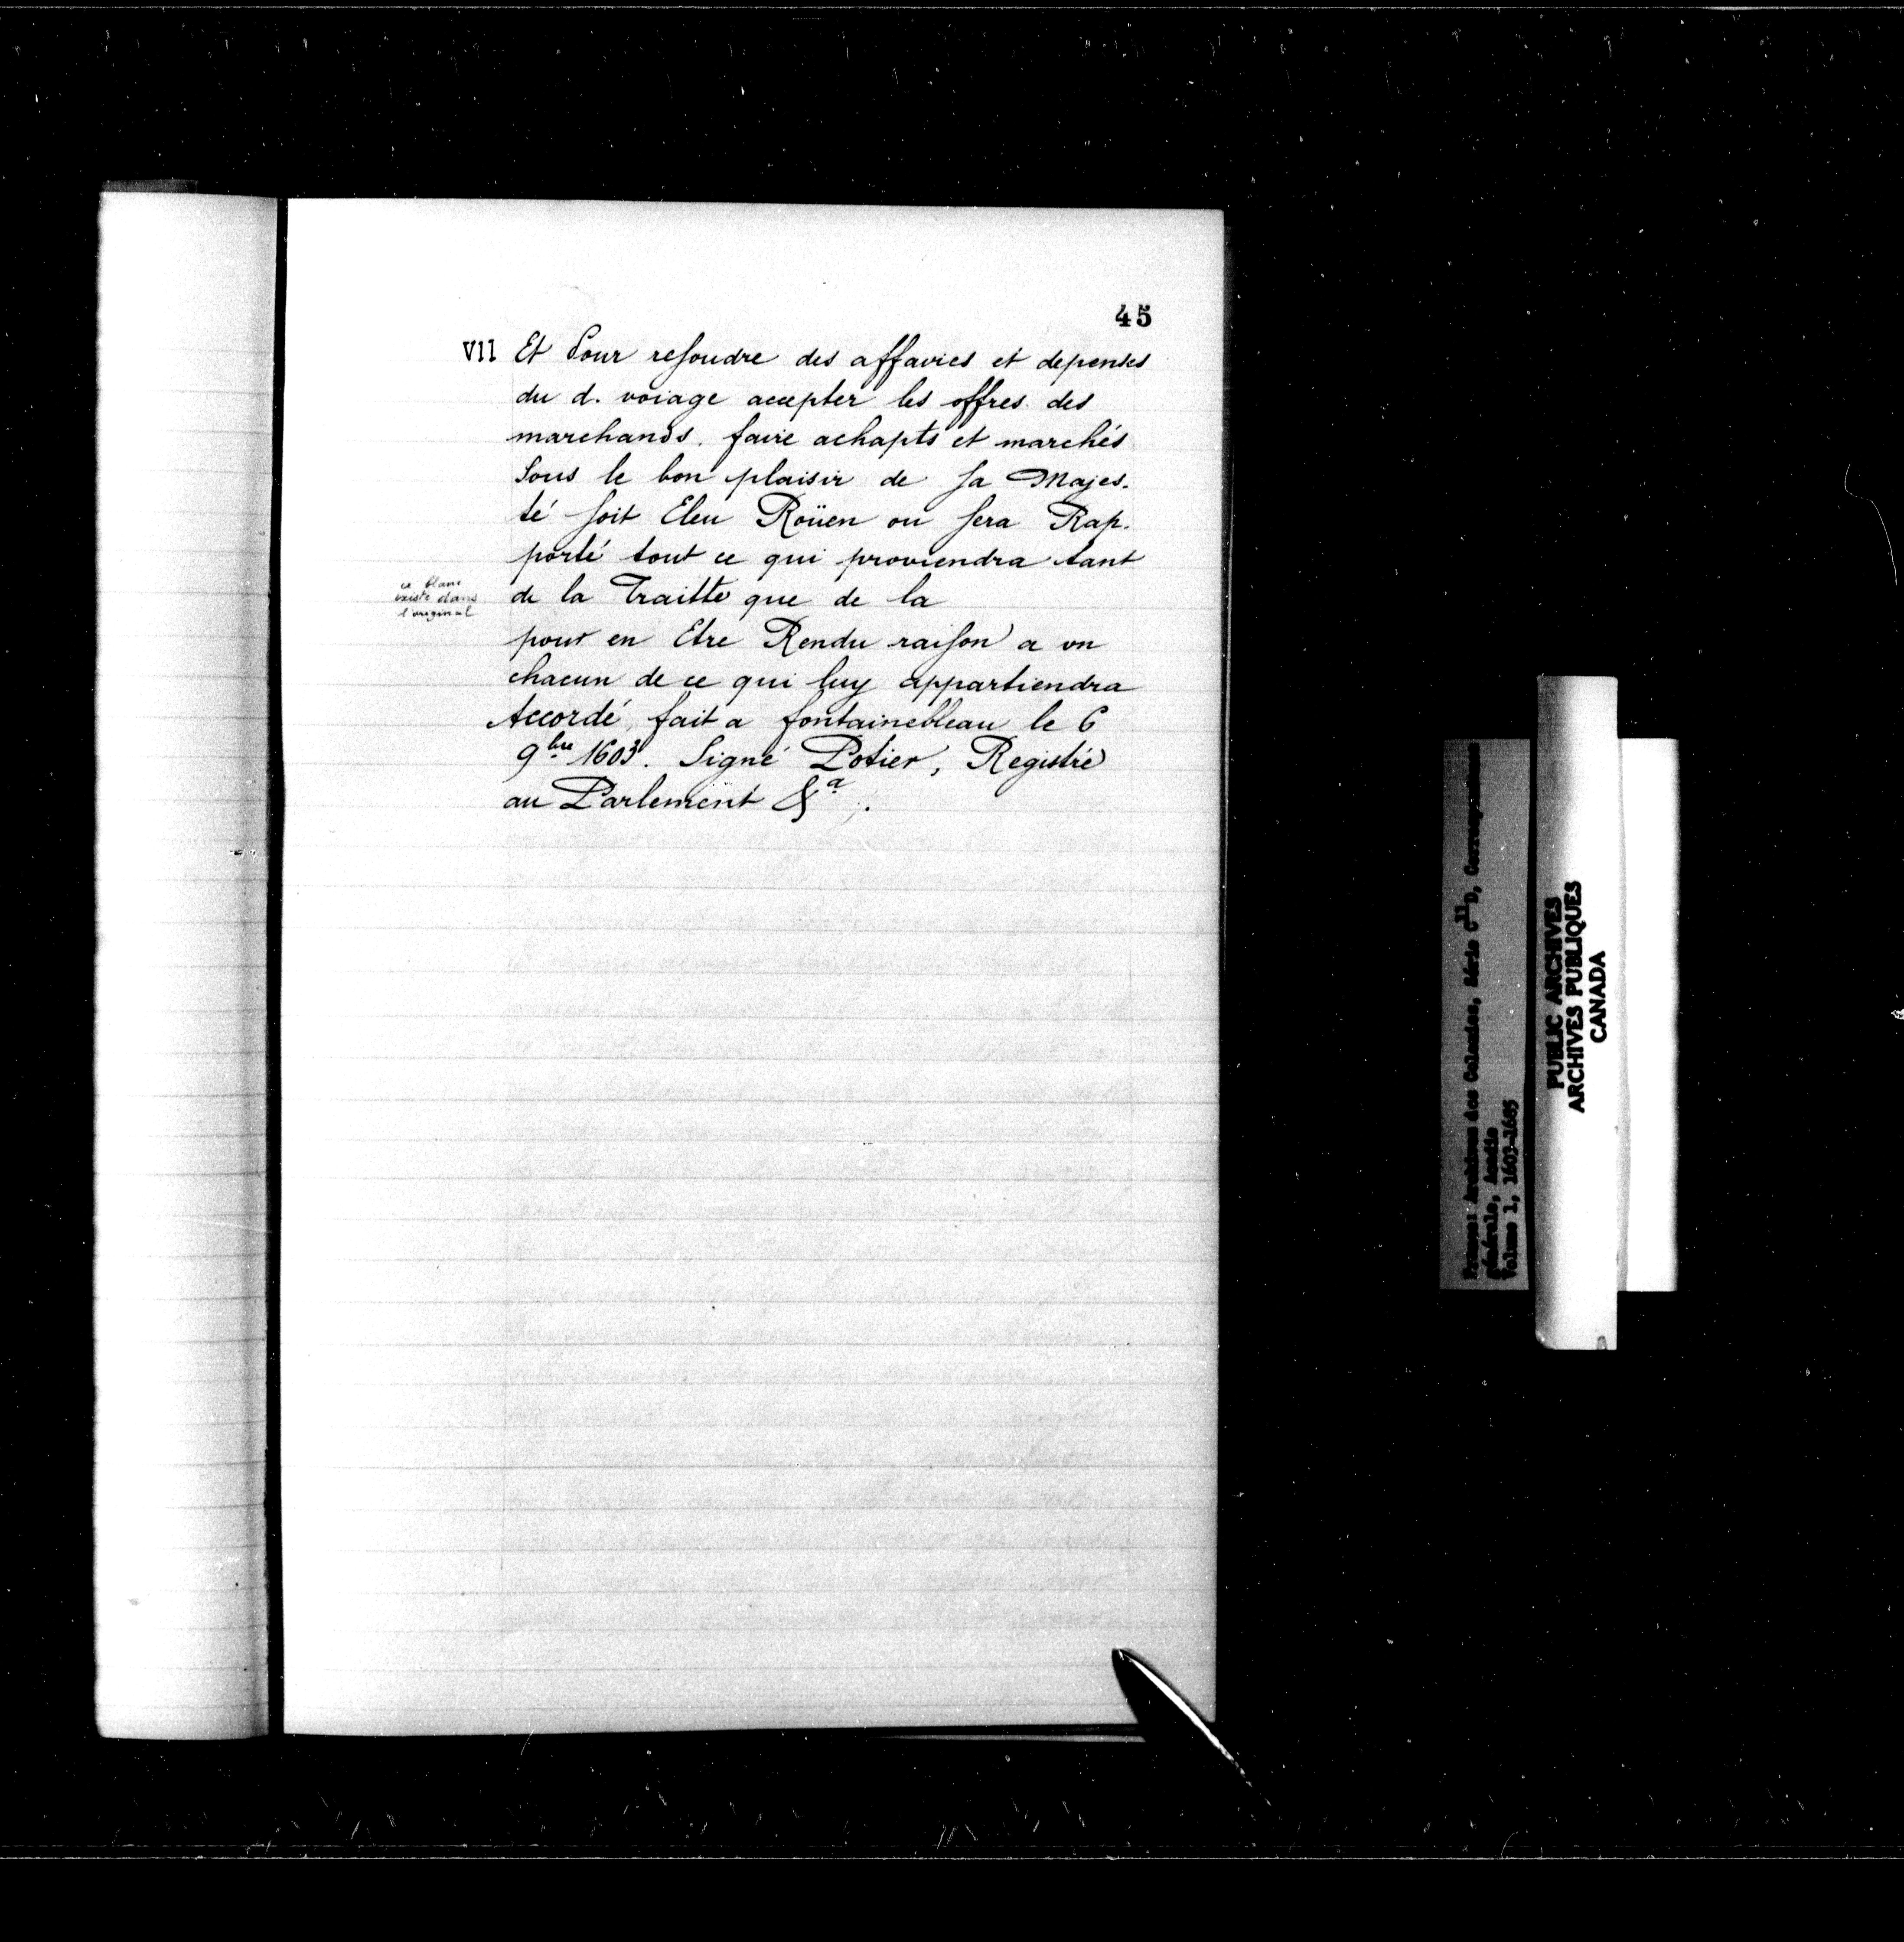 45
VII Et Pour resoudre des affaires et depenses
du d. voiage accepter les offres des
marchands. faire achapts et marchés
Sous le bon plaisir de sa Majes-
té soit Eleu Roüen ou sera Rap-
porté tout ce qui proviendra tant
ce blanc
existe dans
l'original
de la Traitte que de la
pour en Etre Rendu raison a un
chacun de ce qui luy appartiendra
Accordé, fait a fontainebleau le 6
9bre 1603. Signé Potier, Registré
au Parlement &a.
France: Archives des Colonies, Série C11D, Correspondance
générale, Acadie
Volume 1, 1603-1685
PUBLIC ARCHIVES
ARCHIVES PUBLIQUES
CANADA